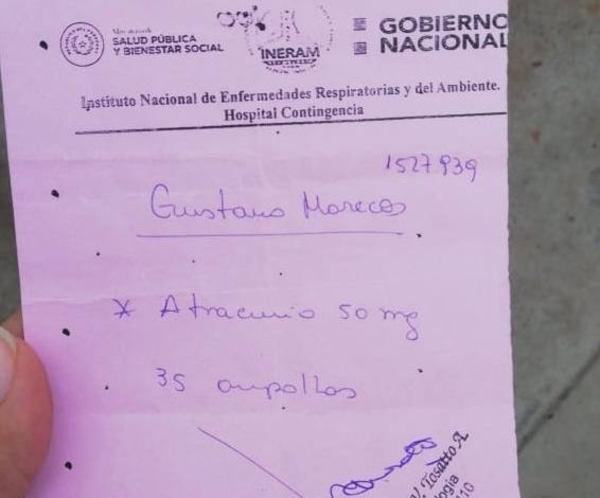 SALUD PÚBLICA
Y BIENESTAR SOCIAL
INERAM
GOBIERNO
NACIONAL
Instituto Nacional de Enfermedades Respiratorias y del Ambiente.
Hospital Contingencia
1527.939
Gustavo Marecos
* Atracurio 50 mg
35 ampollas
Tosatto A.